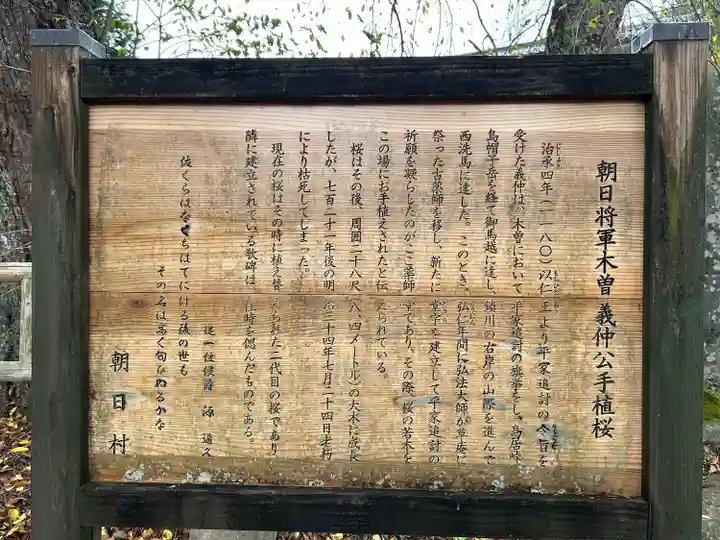 朝日将軍木曽義仲公手植桜
治承四年(一一八〇)以仁王より平家追討の令旨を
受けた義仲は、木曽において平家追討の旗挙をし、鳥居峠、
烏帽子岳を経て御馬越に達し、鎖川の右岸の山際を進んで
西洗馬に達した。このとき、弘仁年間に弘法大師が草庵に
祭った古薬師を移し、新たに堂宇を建立して平家追討の
祈願を凝らしたのがここ薬師堂であり、その際、桜の若木を
この場にお手植えされたと伝えられている。
桜はその後、周囲二十八尺(八・四メートル)の大木に成長
したが、七百二十一年後の明治三十四年七月二十四日老朽
により枯死してしまった。
現在の桜はその時に植え替えられた二代目の桜であり
隣に建立されている歌碑は、往時を偲んだものである。
佐くらはな くちはてにける後の世も
その名は高く匂ひぬるかな
従一位侯爵 源 通久
朝日村